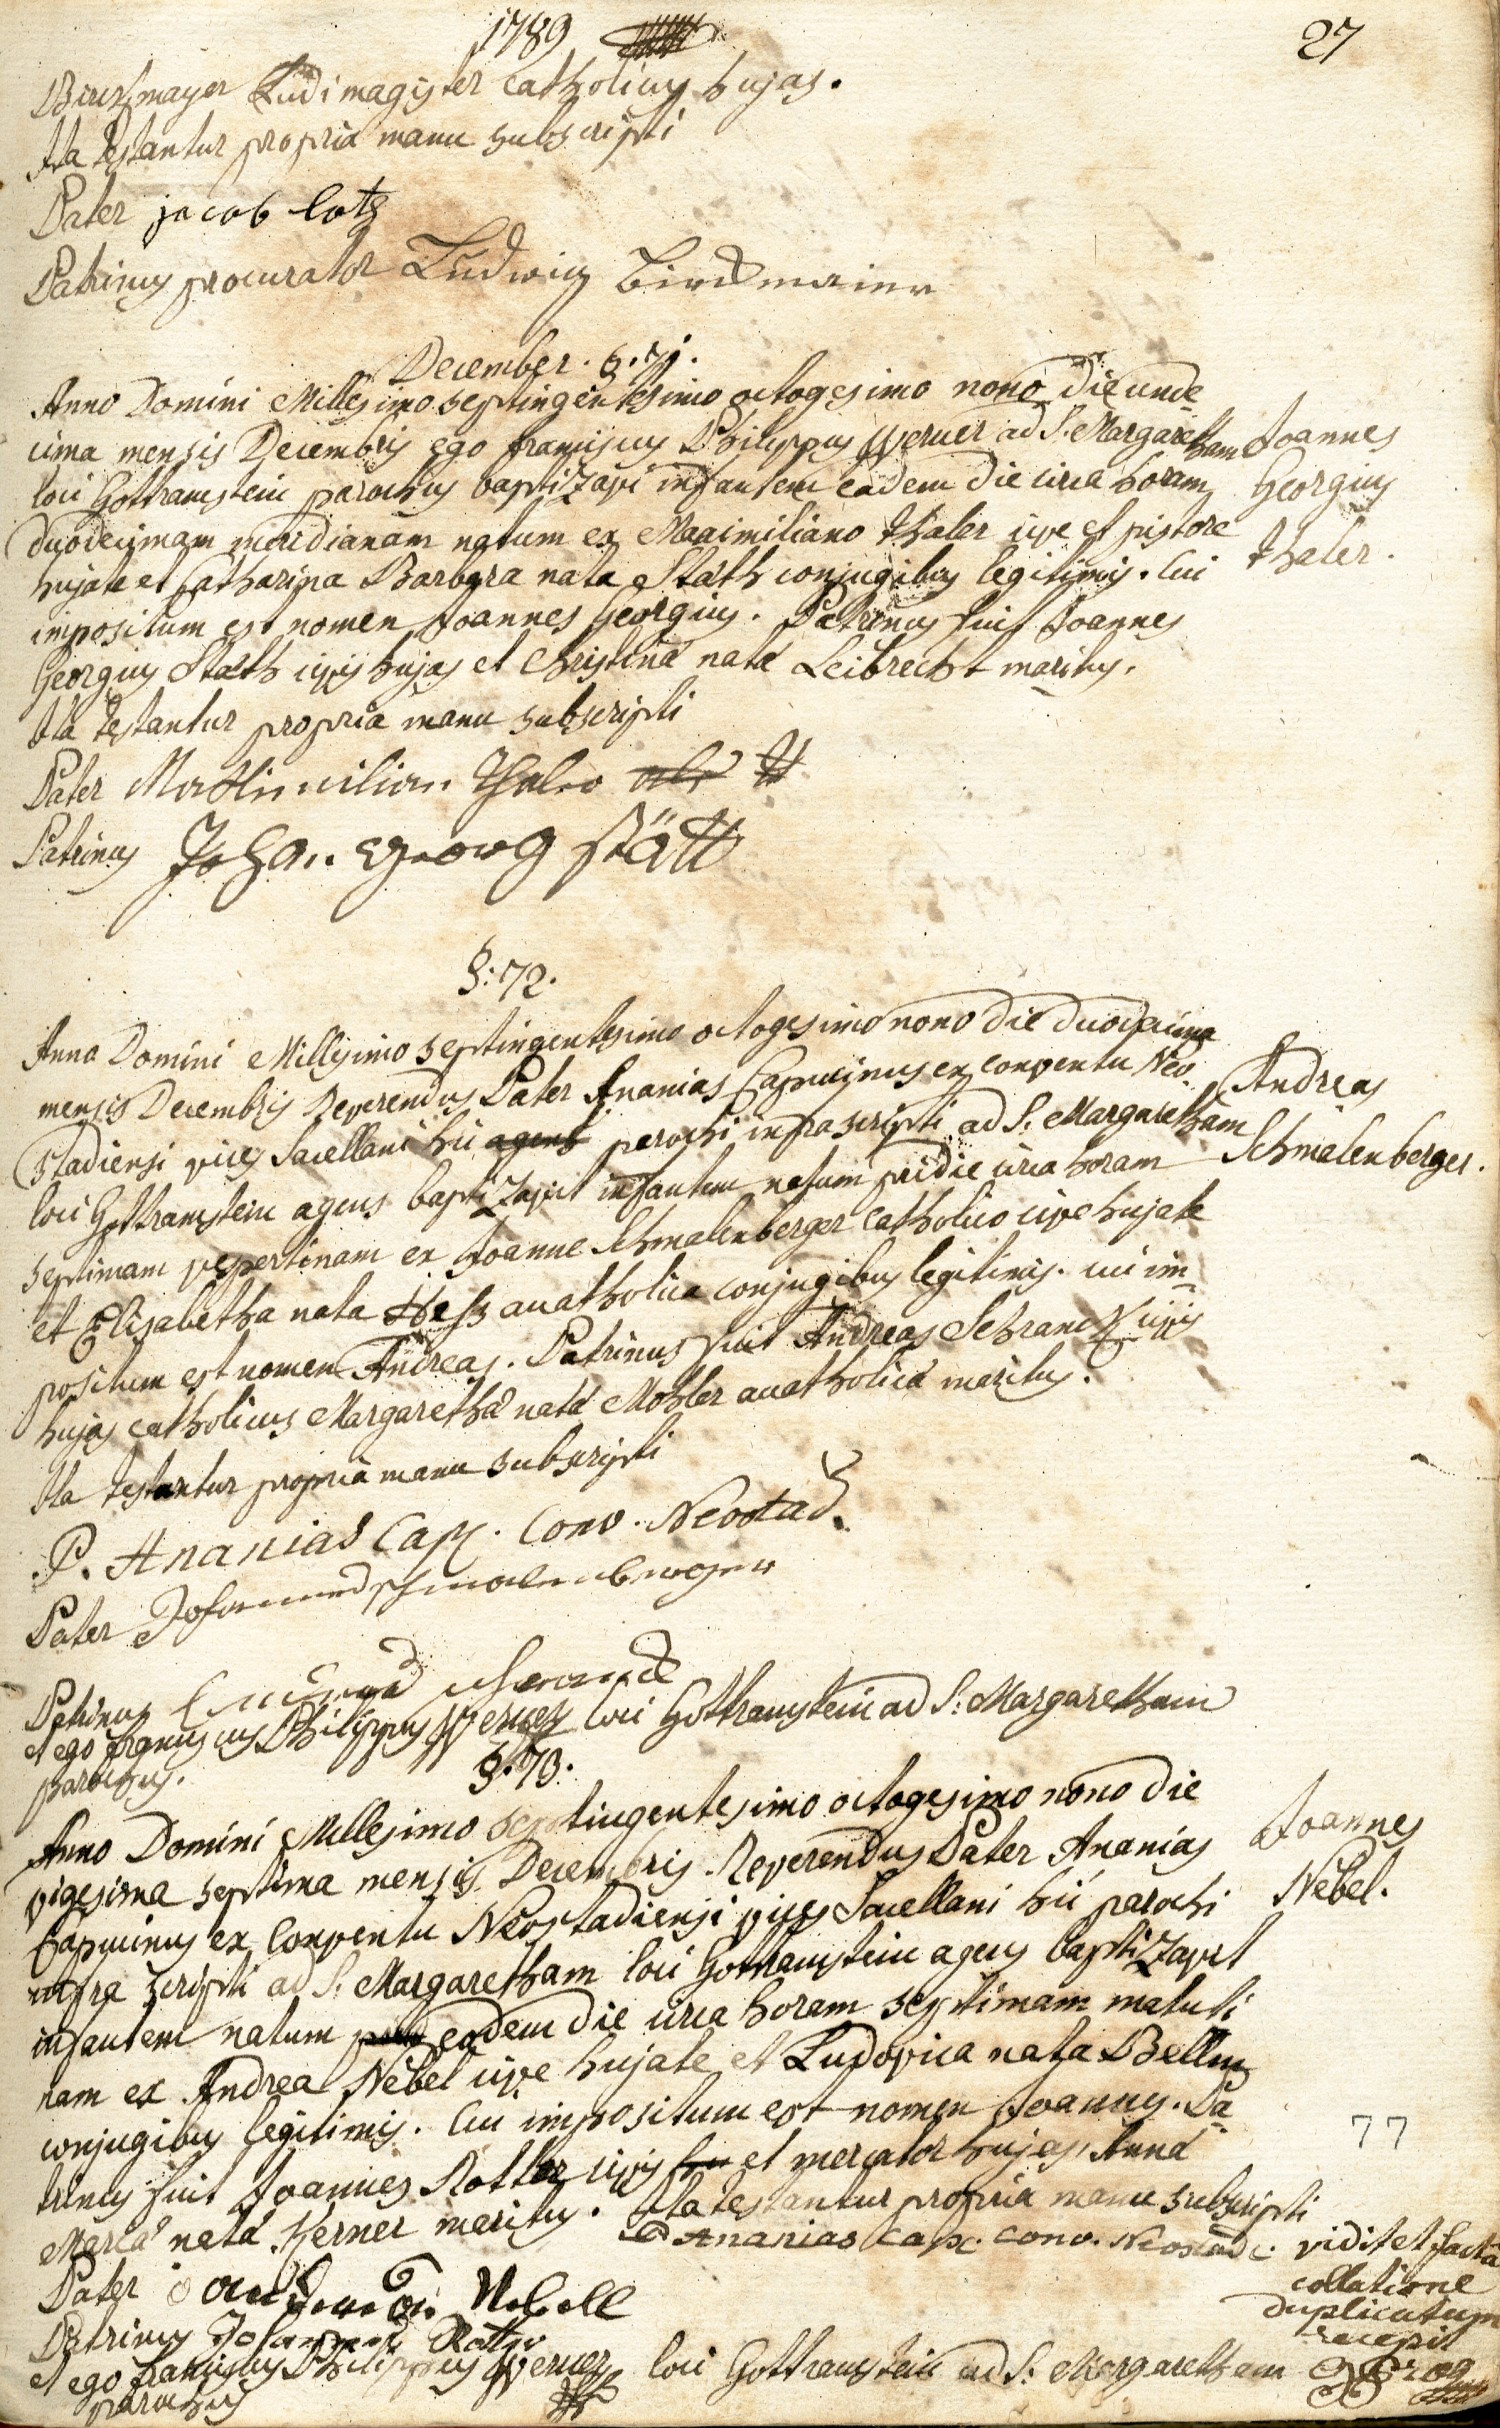 1789
27
Birckmayer Ludimagister Catholicus hujas.
Ita testantur propria manu subscripti
Pater jacob lotz
Patrinus procurator Ludwig Birckmaier
December. §. 71.
Anno Domini Millesimo septingentesimo octogesimo nono die unde
cima mensis Decembris ego franciscus Philippus Werner ad S. Margaretham
loci Gottramstein parochus baptizavi infantem eadem die circa horam
duodecimam meridianam natum ex Maximiliano Thaler cive et pistore
hujate et Catharina Barbara nata Stäth conjugibus legitimis. Cui
impositum est nomen Joannes Georgius. Patrinus fuit Joannes
Georgius Stäth civis hujas et Christina nata Leibrecht maritus.
Joannes
Georgius
Thaler.
Ita testantur propria manu subscripti
Pater Maximilian Thaler
Patrinus Johan Georg stätt
§. 72.
Anno Domini Millesimo septingentesimo octogesimo nono die duodecima
mensis Decembris Reverendus Pater Ananias Capucinus ex conventu Neo
stadiensi vices Sacellani hic agens parochi infra scripti ad S. Margaretham
loci Gottramstein agens baptizavit infantem natum pridie circa horam
septimam vespertinam ex Joanne Schmalenberger catholico cive hujate
et Elisabetha nata Hess acatholica conjugibus legitimis. cui im
positum est nomen Andreas. Patrinus fuit Andreas Schranck civis
hujas catholicus Margaretha nata Mohler acatholica maritus.
Andreas
Schmalenberger.
Ita testantur propria manu subscripti
P. Ananias Cap. Conv. Neostad.
Pater Johannes schmalenberger
Patrinus
et ego franciscus Philippus Werner loci Gottramstein ad S. Margaretham
parochus.
§. 73.
Anno Domini Millesimo septingentesimo octogesimo nono die
vigesima septima mensis Decembris Reverendus Pater Ananias
Capucinus ex Conventu Neostadiensi vices Sacellani hic parochi
infra scripti ad S. Margaretham loci Gottramstein agens baptizavit
infantem natum eadem die circa horam septimam matuti
nam ex Andrea Nebel cive hujate et Ludovica nata Bellm
conjugibus legitimis. Cui impositum est nomen Joannes. Pa
trinus fuit Joannes Rotter civis et mercator hujas, Anna
Maria nata Kerner maritus. Ita testantur propria manu subscripti
Joannes
Nebel.
77
P Ananias Cap. Conv. Neostad.
Pater Nebell
Patrinus Johannes Rotter
et ego franciscus Philippus Werner loci Gottramstein ad S. Margaretham
parochus
vidit et facta
collatione
duplicatum
recepit